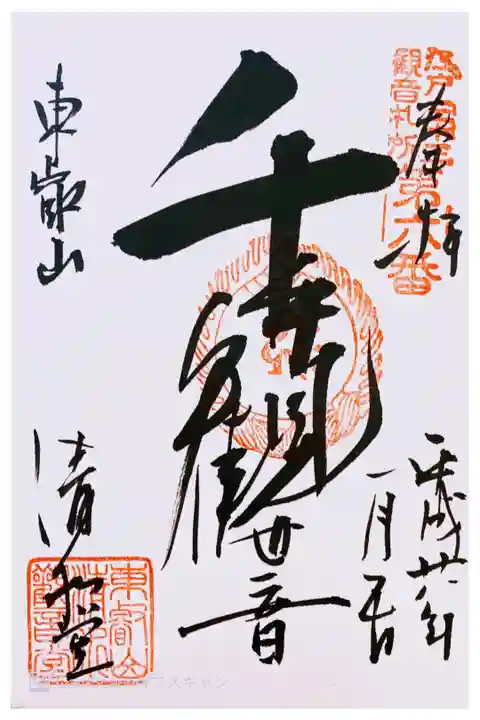 奉拝
観音札所第六番
平成廿八年
一月
千手観世音
東叡山
清水堂
東叡山
観音堂